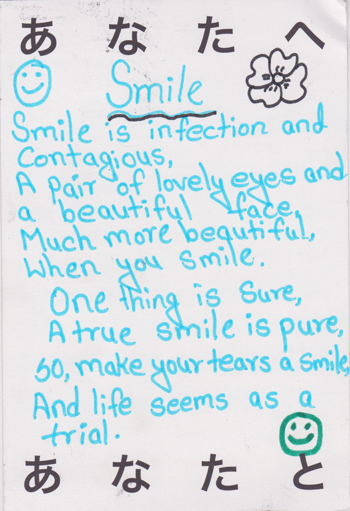 あなたへ
Smile
Smile is infection and
Contagious,
A pair of lovely eyes and
a beautiful face,
Much more beautiful,
When you smile.
One thing is sure,
A true smile is pure,
so, make your tears a smile,
And life seems as a
trial.
あなたと